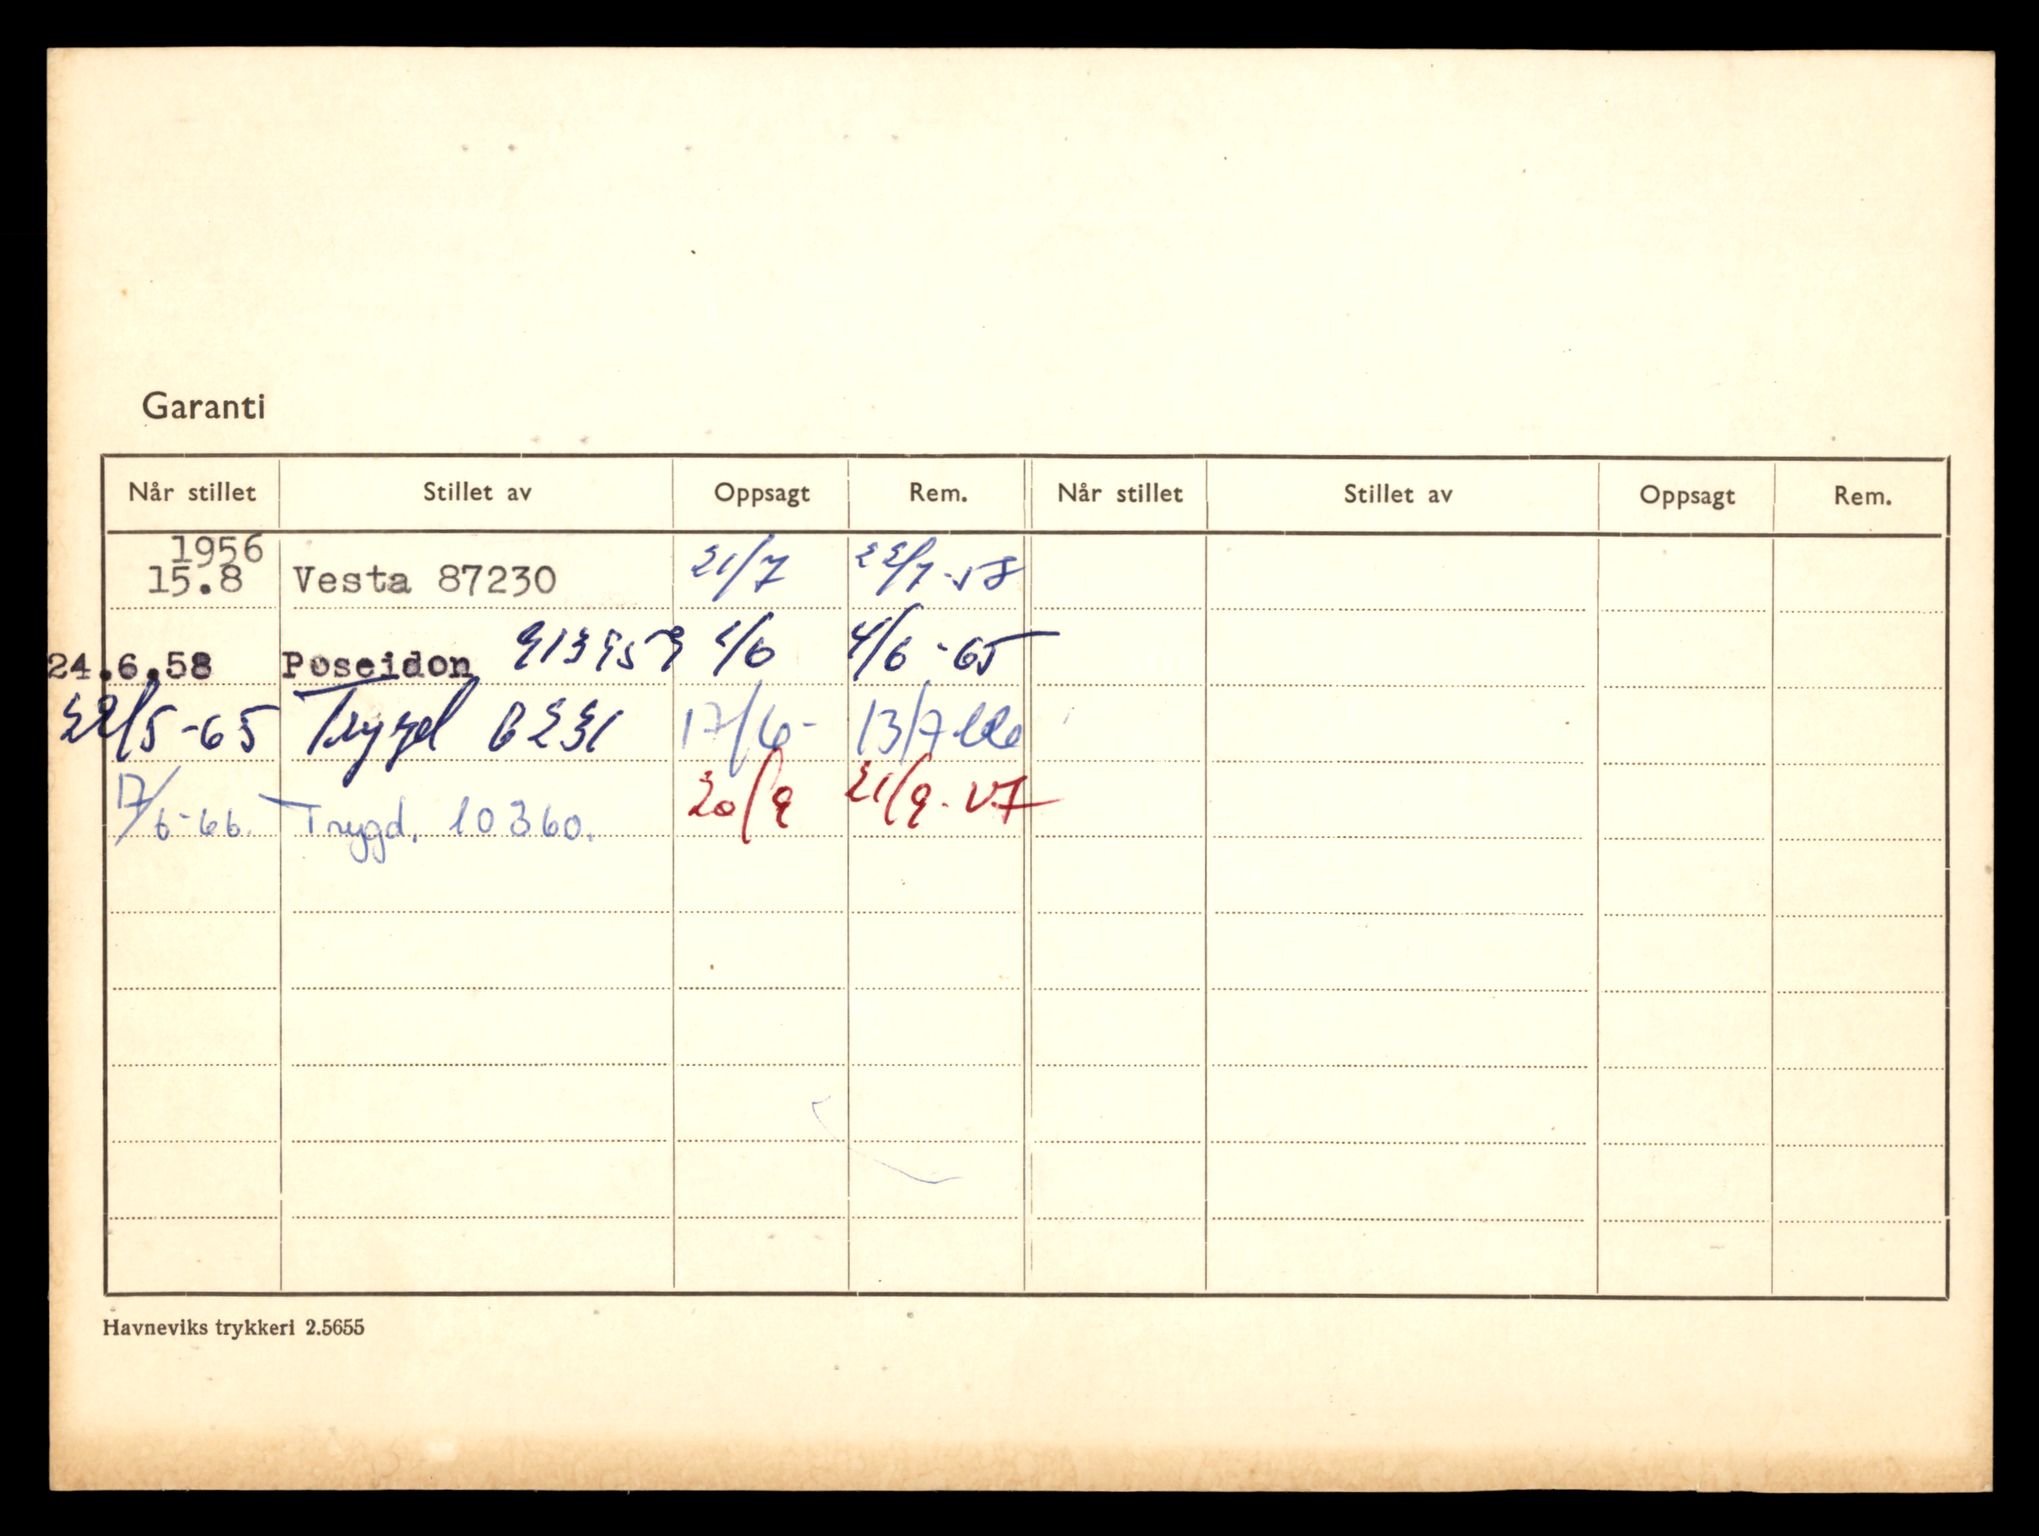 Garanti
Når stillet Stillet av Oppsagt Rem. Når stillet Stillet av Oppsagt Rem.
1956
15.8 Vesta 87230 21/7 22/7-58
24.6.58 Poseidon 4/6-65
22/5-65 Trygd 6231 17/6- 13/7-66
17/6-66. Trygd. 10360. 20/9 21/9-67
Havneviks trykkeri 2.5655